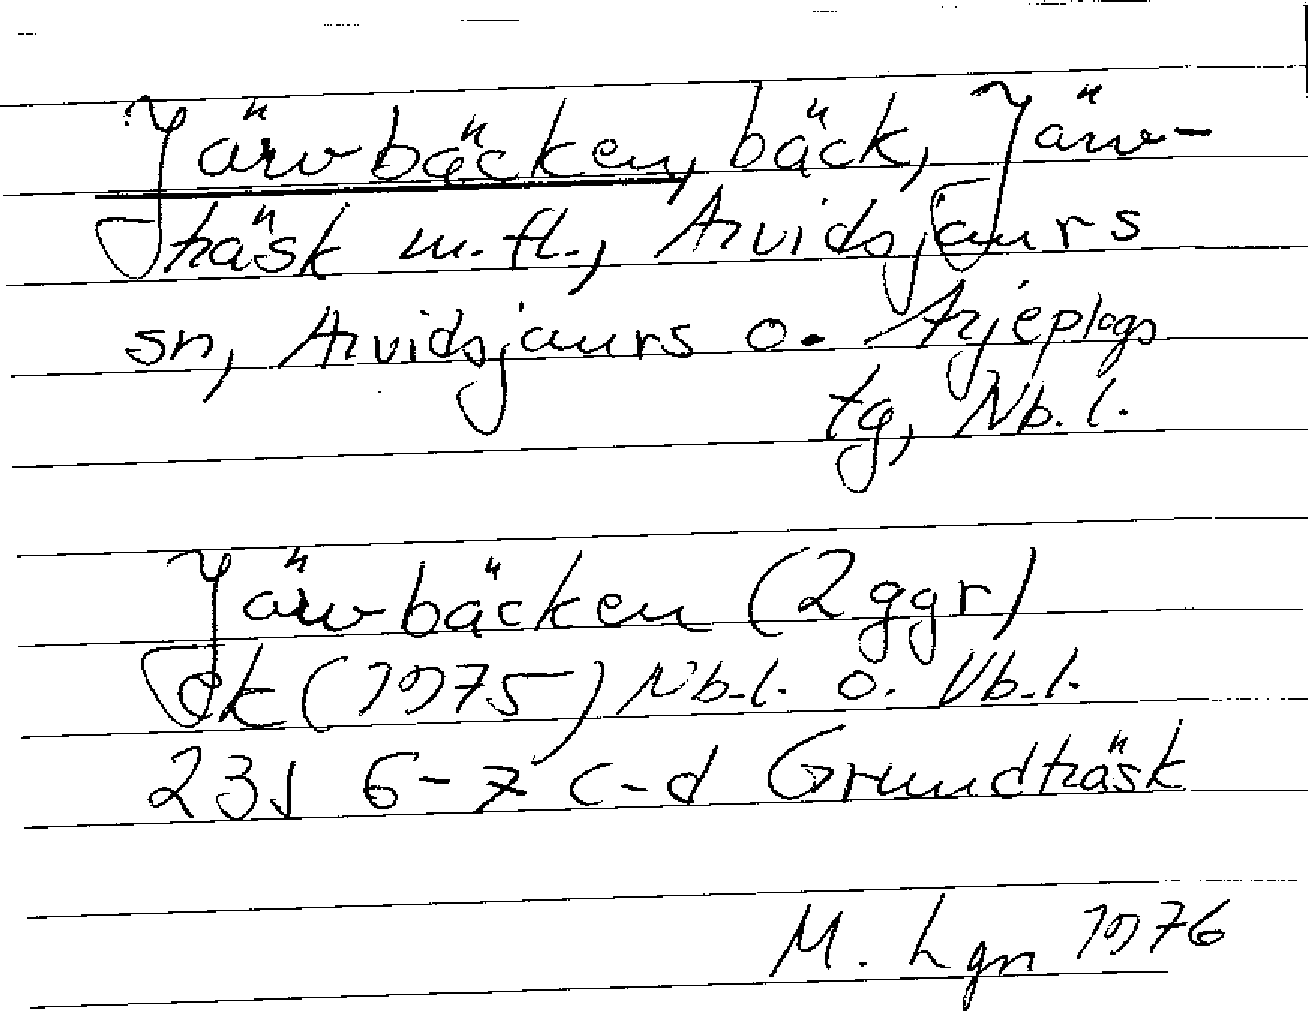 Järvbäcken, bäck, Järv-
träsk m.fl., Arvidsjaurs
sn, Arvidsjaurs o. Arjeplogs
tg, Nb. l.
Järvbäcken (2 ggr)
ek (1975) Nb.l. o. Vb.l.
23J 6-7 c-d Grundträsk
M. Lgn 1976